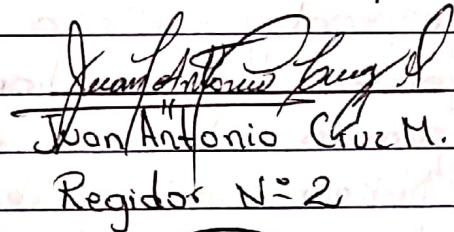 Juan Antonio Cruz M
Juan Antonio Cruz M.
Regidor Nº 2